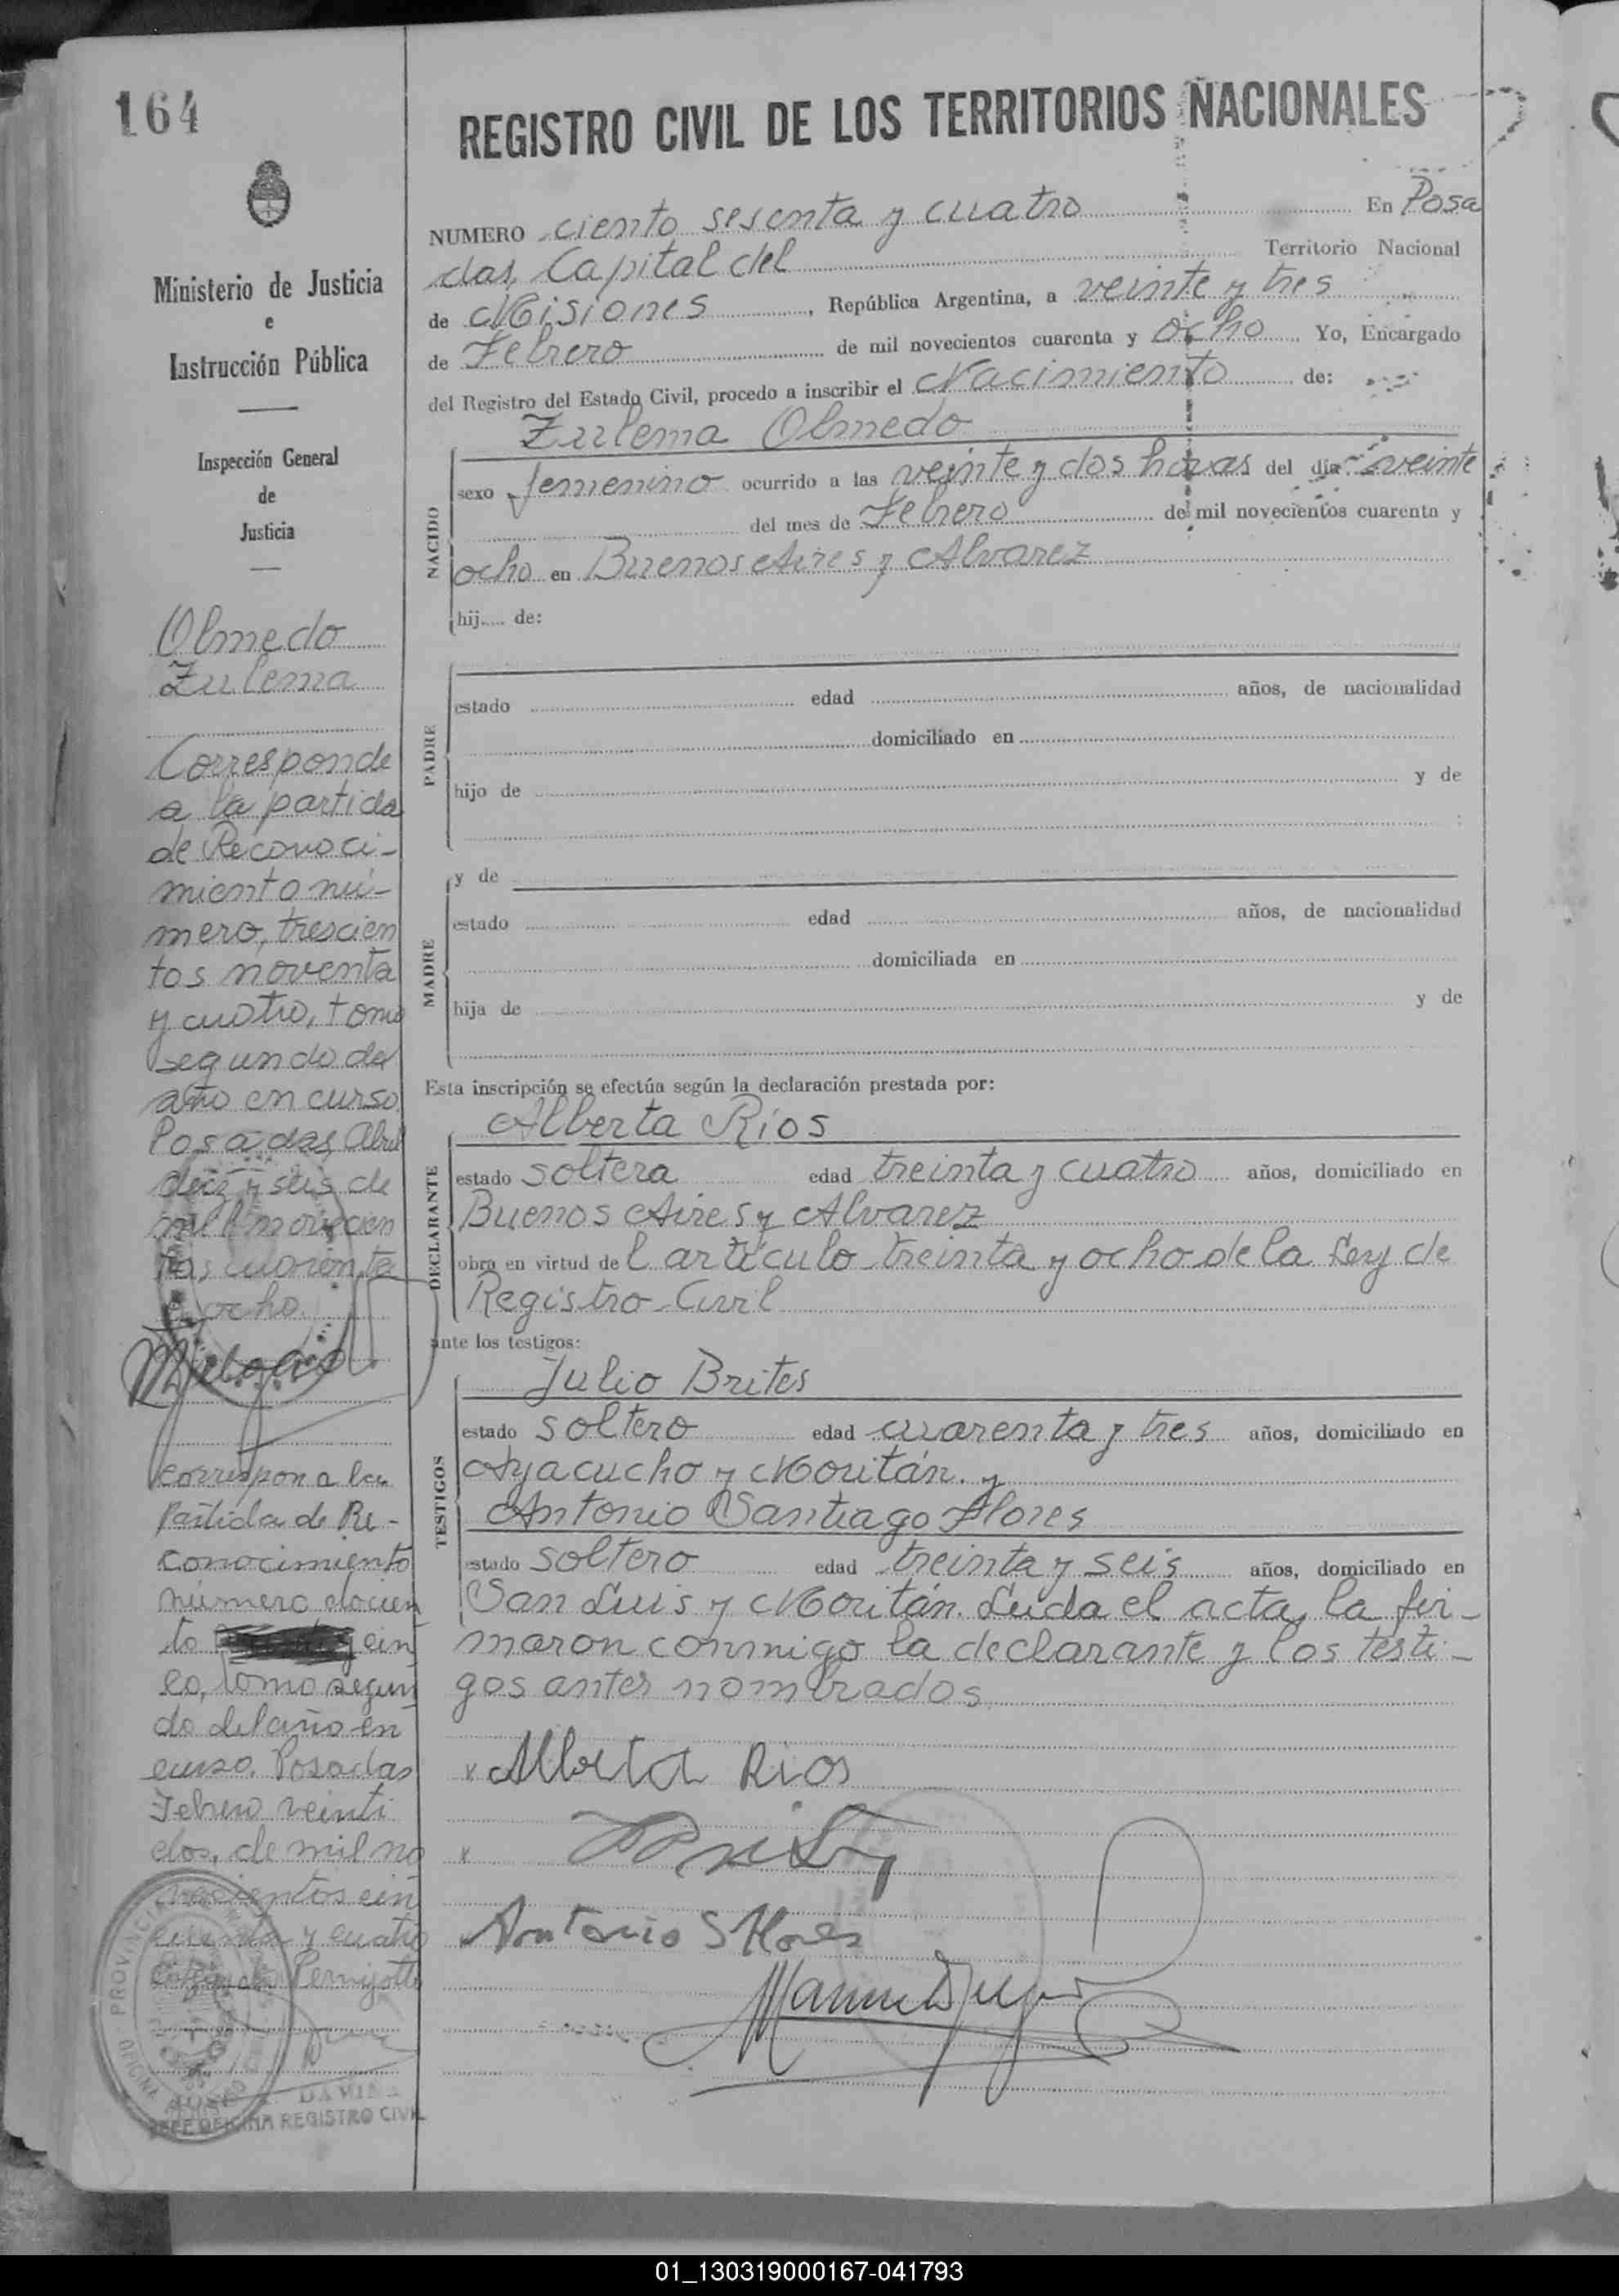 164
Ministerio de Justicia
e
Instrucción Pública
Inspección General
de
Justicia
Olmedo
Zulema
Corresponde
a la partida
de Reconoci-
miento nú-
mero, trescien
tos noventa
y cuatro, tomo
segundo del
año en curso
Posadas, Abril
diez y seis de
mil novecien
tos cuarenta
y ocho.
correspon a la
Partida de Re-
conocimiento
número docien
to cin
co, tomo segun
do del año en
curso. Posadas
Febrero veinti
dos, de mil no
vecientos cin
cuenta y cuatro
Pernigotti
PROVINCIA
OFICINA
JEFE OFICINA REGISTRO CIVIL
REGISTRO CIVIL DE LOS TERRITORIOS NACIONALES
NUMERO ciento sesenta y cuatro En Posa
das, Capital del Territorio Nacional
de Misiones, República Argentina, a veinte y tres
de Febrero de mil novecientos cuarenta y ocho. Yo, Encargado
del Registro del Estado Civil, procedo a inscribir el Nacimiento de:
Zulema Olmedo
NACIDO
sexo femenino ocurrido a las veinte y dos horas del día veinte
del mes de Febrero de mil novecientos cuarenta y
ocho en Buenos Aires y Alvarez
hij..... de:
PADRE
estado edad años, de nacionalidad
domiciliado en
hijo de y de
MADRE
y de
estado edad años, de nacionalidad
domiciliada en
hija de y de
Esta inscripción se efectúa según la declaración prestada por:
Alberta Ríos
DECLARANTE
estado soltera edad treinta y cuatro años, domiciliado en
Buenos Aires y Alvarez
obra en virtud del artículo treinta y ocho de la Ley de
Registro Civil
ante los testigos:
Julio Brites
TESTIGOS
estado soltero edad cuarenta y tres años, domiciliado en
Ayacucho y Moritán. y
Antonio Santiago Flores
estado soltero edad treinta y seis años, domiciliado en
San Luis y Moritán. Leída el acta, la fir-
maron conmigo la declarante y los testi-
gos antes nombrados
x Alberta Rios
x
Antonio S Flores
01_130319000167-041793